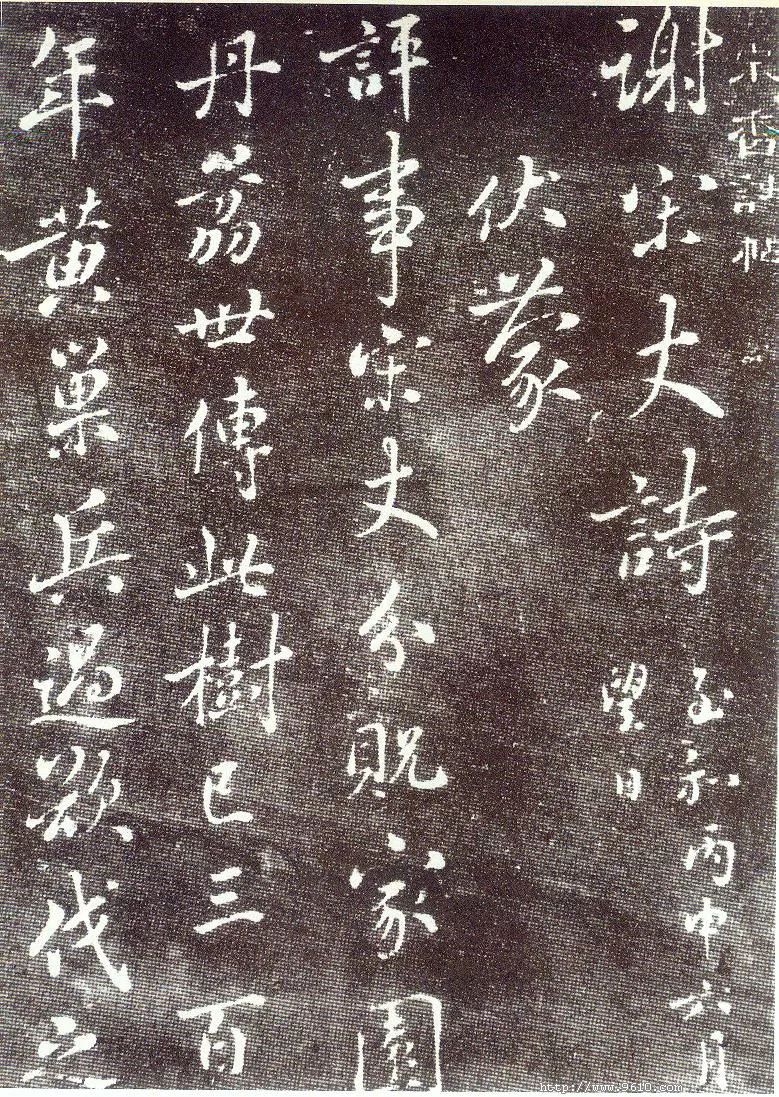 宋香詩帖
謝宋丈詩
至和丙申六月
望日
伏蒙
評事宋丈分貺家園
丹荔世傳此樹已三百
年黃巢兵過欲伐之
http://www.9610.com